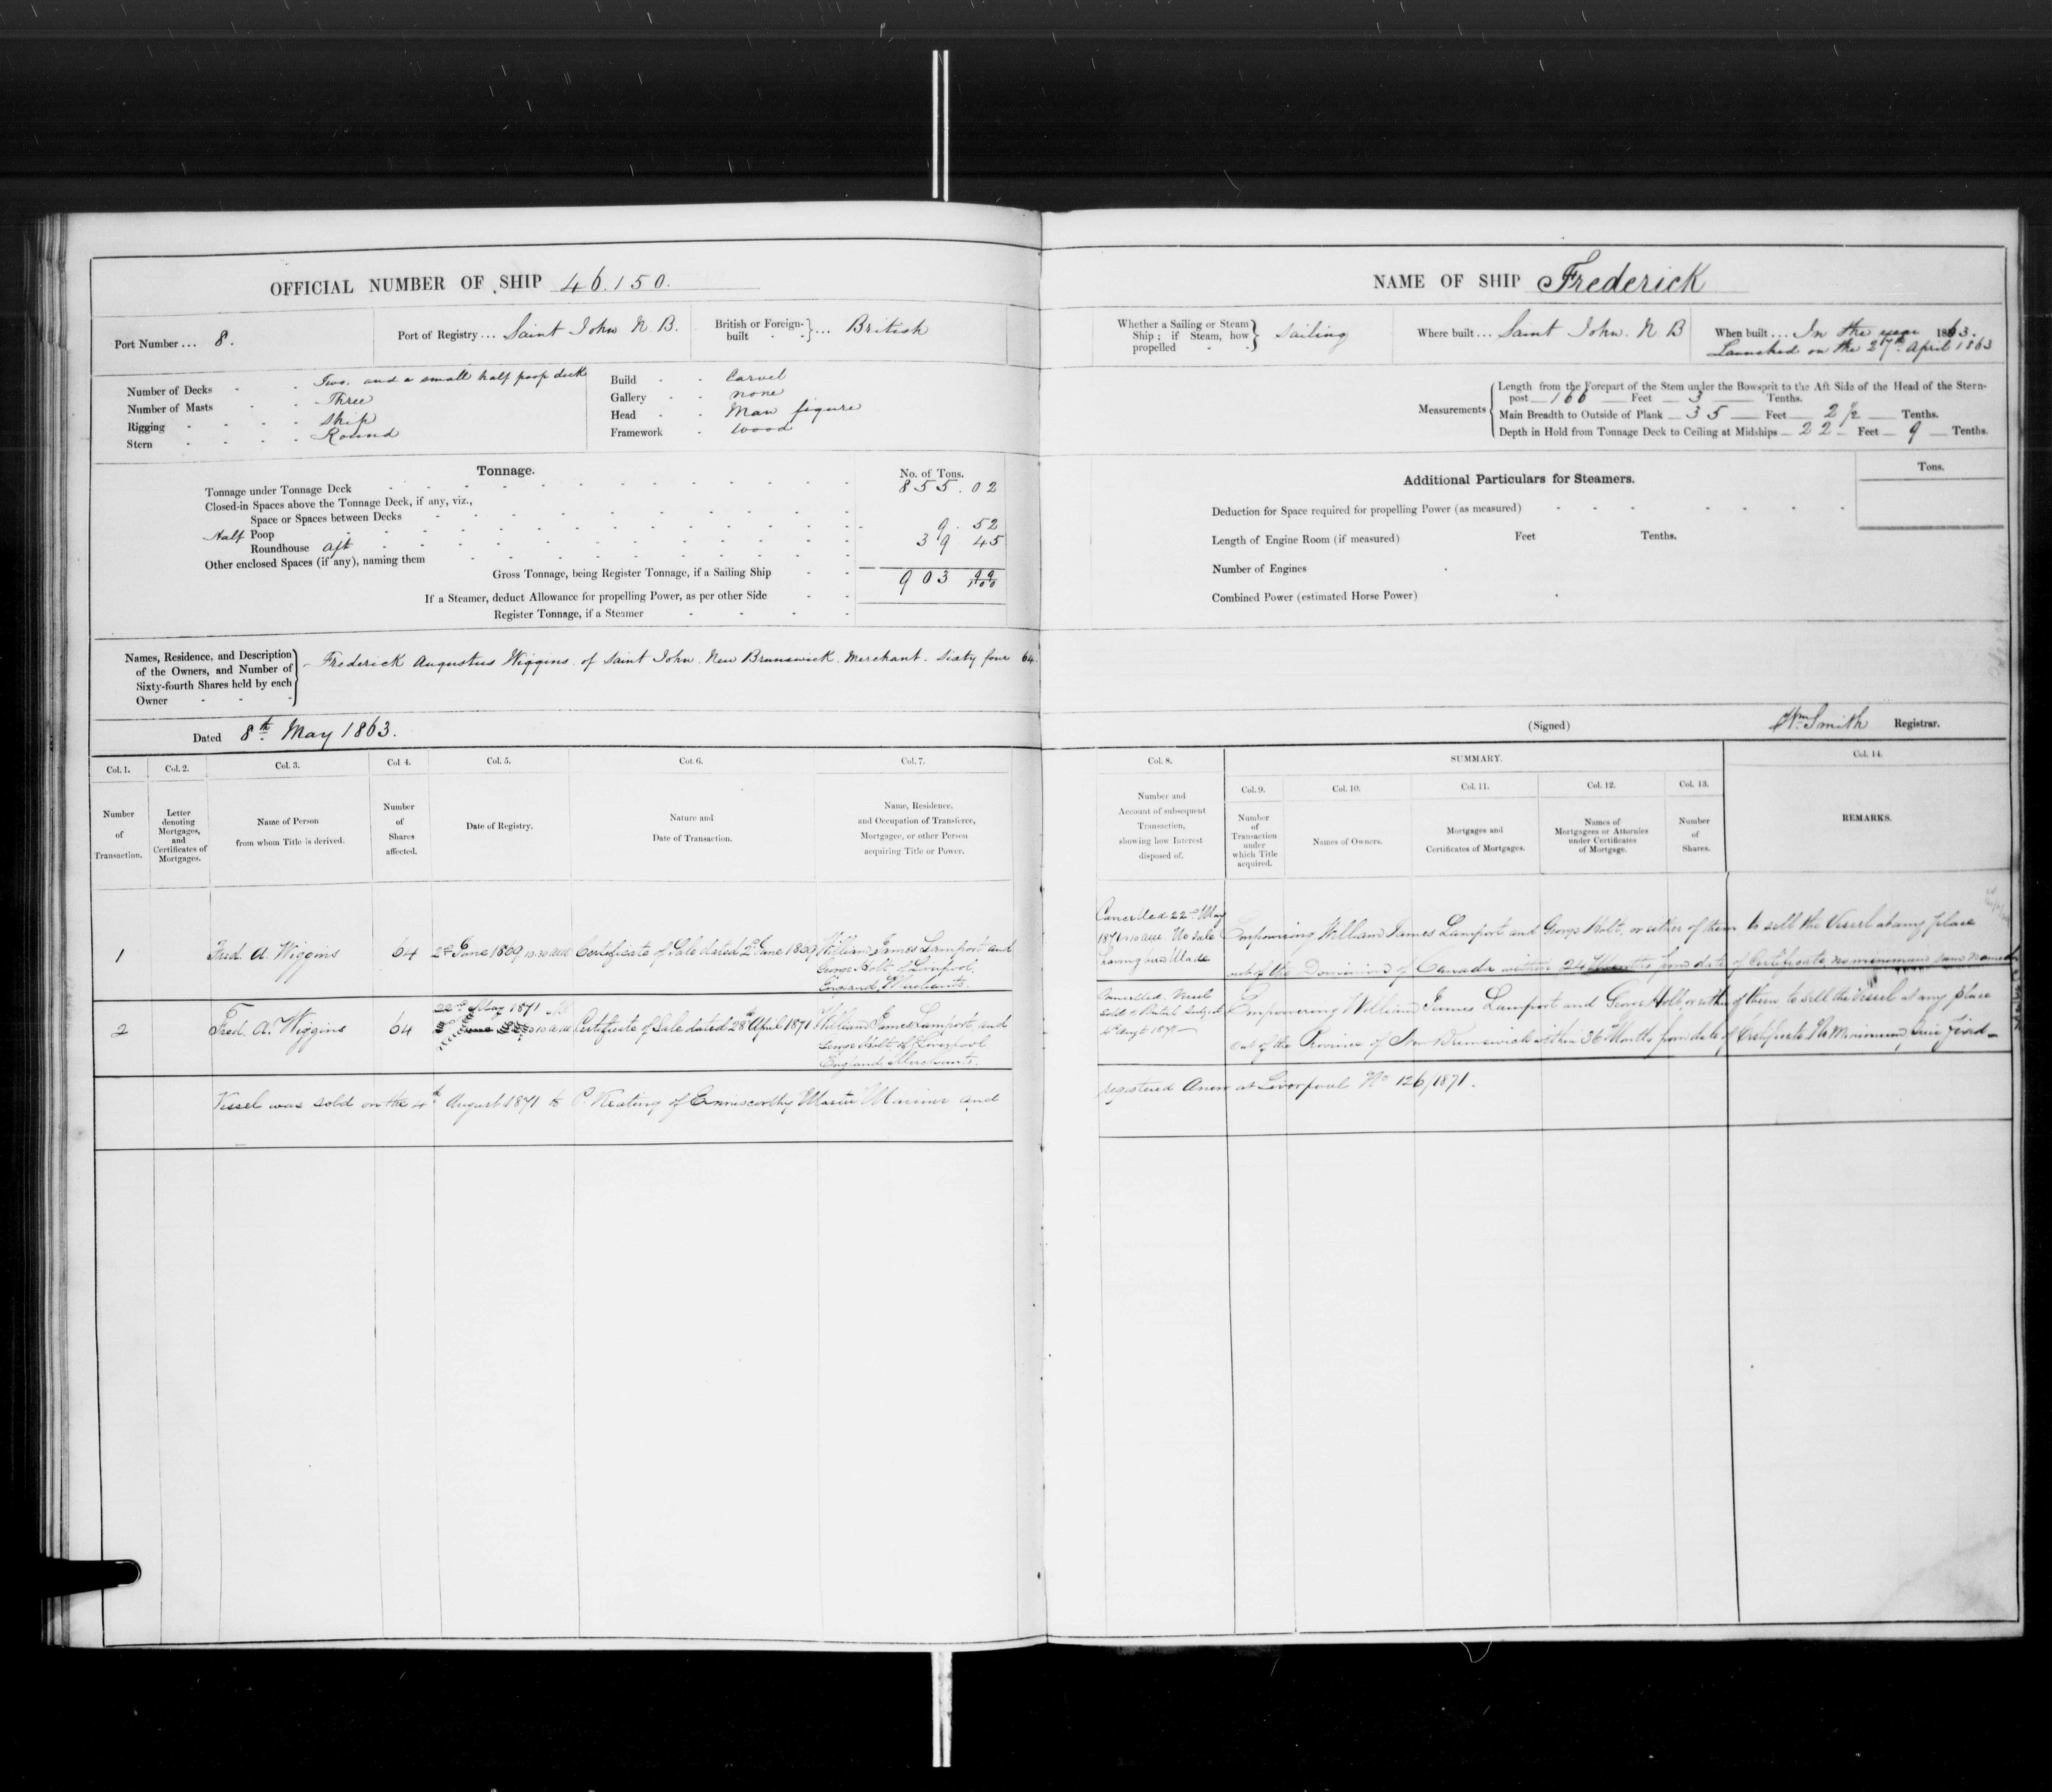 OFFICIAL NUMBER OF SHIP 46.150.
Port Number ... 8.
Port of Registry ... Saint John N.B.
British or Foreign-built } ... British
Number of Decks - - Two. and a small half poop deck
Number of Masts - - Three
Rigging - - - - Ship
Stern - - - - Round
Build - - Carvel
Gallery - - none
Head - - Man figure
Framework - wood
Tonnage.
No. of Tons.
Tonnage under Tonnage Deck 855.02
Closed-in Spaces above the Tonnage Deck, if any, viz.,
Space or Spaces between Decks
Half Poop 9.52
Roundhouse aft 39 45
Other enclosed Spaces (if any), naming them
Gross Tonnage, being Register Tonnage, if a Sailing Ship 903 99/100
If a Steamer, deduct Allowance for propelling Power, as per other Side
Register Tonnage, if a Steamer
Names, Residence, and Description of the Owners, and Number of Sixty-fourth Shares held by each Owner
Frederick Augustus Wiggins of Saint John New Brunswick. Merchant. Sixty four 64.
Dated 8th May 1863.
Col. 1. Col. 2. Col. 3. Col. 4. Col. 5. Col. 6. Col. 7.
Number of Transaction.
Letter denoting Mortgages, and Certificates of Mortgages.
Name of Person from whom Title is derived.
Number of Shares affected.
Date of Registry.
Nature and Date of Transaction.
Name, Residence, and Occupation of Transferee, Mortgagee, or other Person acquiring Title or Power.
1 Fred. A. Wiggins 64 2nd June 1869 10.30 AM Certificate of Sale dated 2nd June 1869 William James Lamport and
George Holt, of Liverpool,
England, Merchants.
22nd May 1871
2 Fred. A. Wiggins 64 Certificate of Sale dated 28th April 1871 William James Lamport and
George Holt of Liverpool
England Merchants.
Vessel was sold on the 4th August 1871 to P. Keating of Enniscorthy Master Mariner and
NAME OF SHIP Frederick
Whether a Sailing or Steam Ship; if Steam, how propelled } Sailing
Where built ... Saint John. N.B
When built ... In the year 1863.
Launched on the 27th April 1863
Measurements
Length from the Forepart of the Stem under the Bowsprit to the Aft Side of the Head of the Stern-
post 166 Feet 3 Tenths.
Main Breadth to Outside of Plank 35 Feet 2½ Tenths.
Depth in Hold from Tonnage Deck to Ceiling at Midships 22 Feet 9 Tenths.
Additional Particulars for Steamers.
Tons.
Deduction for Space required for propelling Power (as measured)
Length of Engine Room (if measured) Feet Tenths.
Number of Engines
Combined Power (estimated Horse Power)
(Signed) Wm Smith Registrar.
Col. 8. SUMMARY. Col. 14.
Col. 9. Col. 10. Col. 11. Col. 12. Col. 13.
Number and Account of subsequent Transaction, showing how Interest disposed of.
Number of Transaction under which Title acquired.
Names of Owners.
Mortgages and Certificates of Mortgages.
Names of Mortgagees or Attornies under Certificates of Mortgage.
Number of Shares.
REMARKS.
Cancelled 22nd May
1871 No Sale
having been Made
Empowering William James Lamport and George Holt, or either of them to sell the Vessel at any place
out of the Dominion of Canada within 24 Months from date of Certificate no minimum sum named
Cancelled. Vessel
sold to British Subject
4th Augt 1871
Empowering William James Lamport and George Holt, or either of them to sell the Vessel at any place
out of the Province of New Brunswick within 36 Months from date of Certificate No Minimum price fixed
registered Anew at Liverpool No 126/1871.